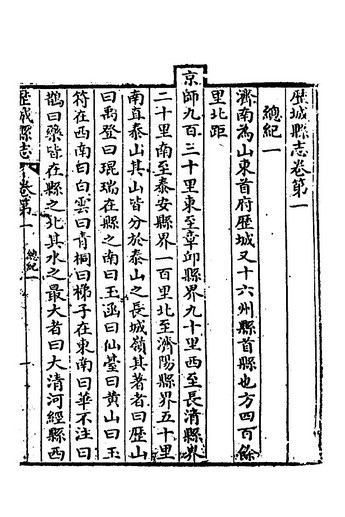 歷城縣志卷第一
總紀一
濟南為山東首府歷城又十六州縣首縣也方四百餘
里北距
京師九百三十里東至章邱縣界九十里西至長清縣界
二十里南至泰安縣界一百里北至濟陽縣界五十里
南直泰山其山皆分於泰山之長城嶺其著者曰歷山
曰禹登曰琨瑞在縣之南曰玉函曰仙臺曰黃山曰玉
符在西南曰白雲曰青桐曰梯子在東南曰華不注曰
鵲曰藥皆在縣之北其水之最大者曰大清河經縣西
歷城縣志 卷第一 總紀一 一